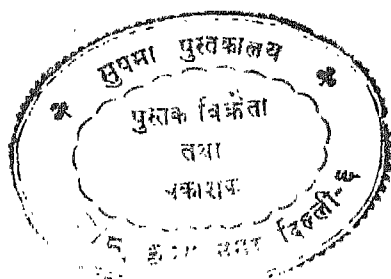 सुषमा पुस्तकालय
पुस्तक विक्रेता
तथा
प्रकाशक
नगर दिल्ली-